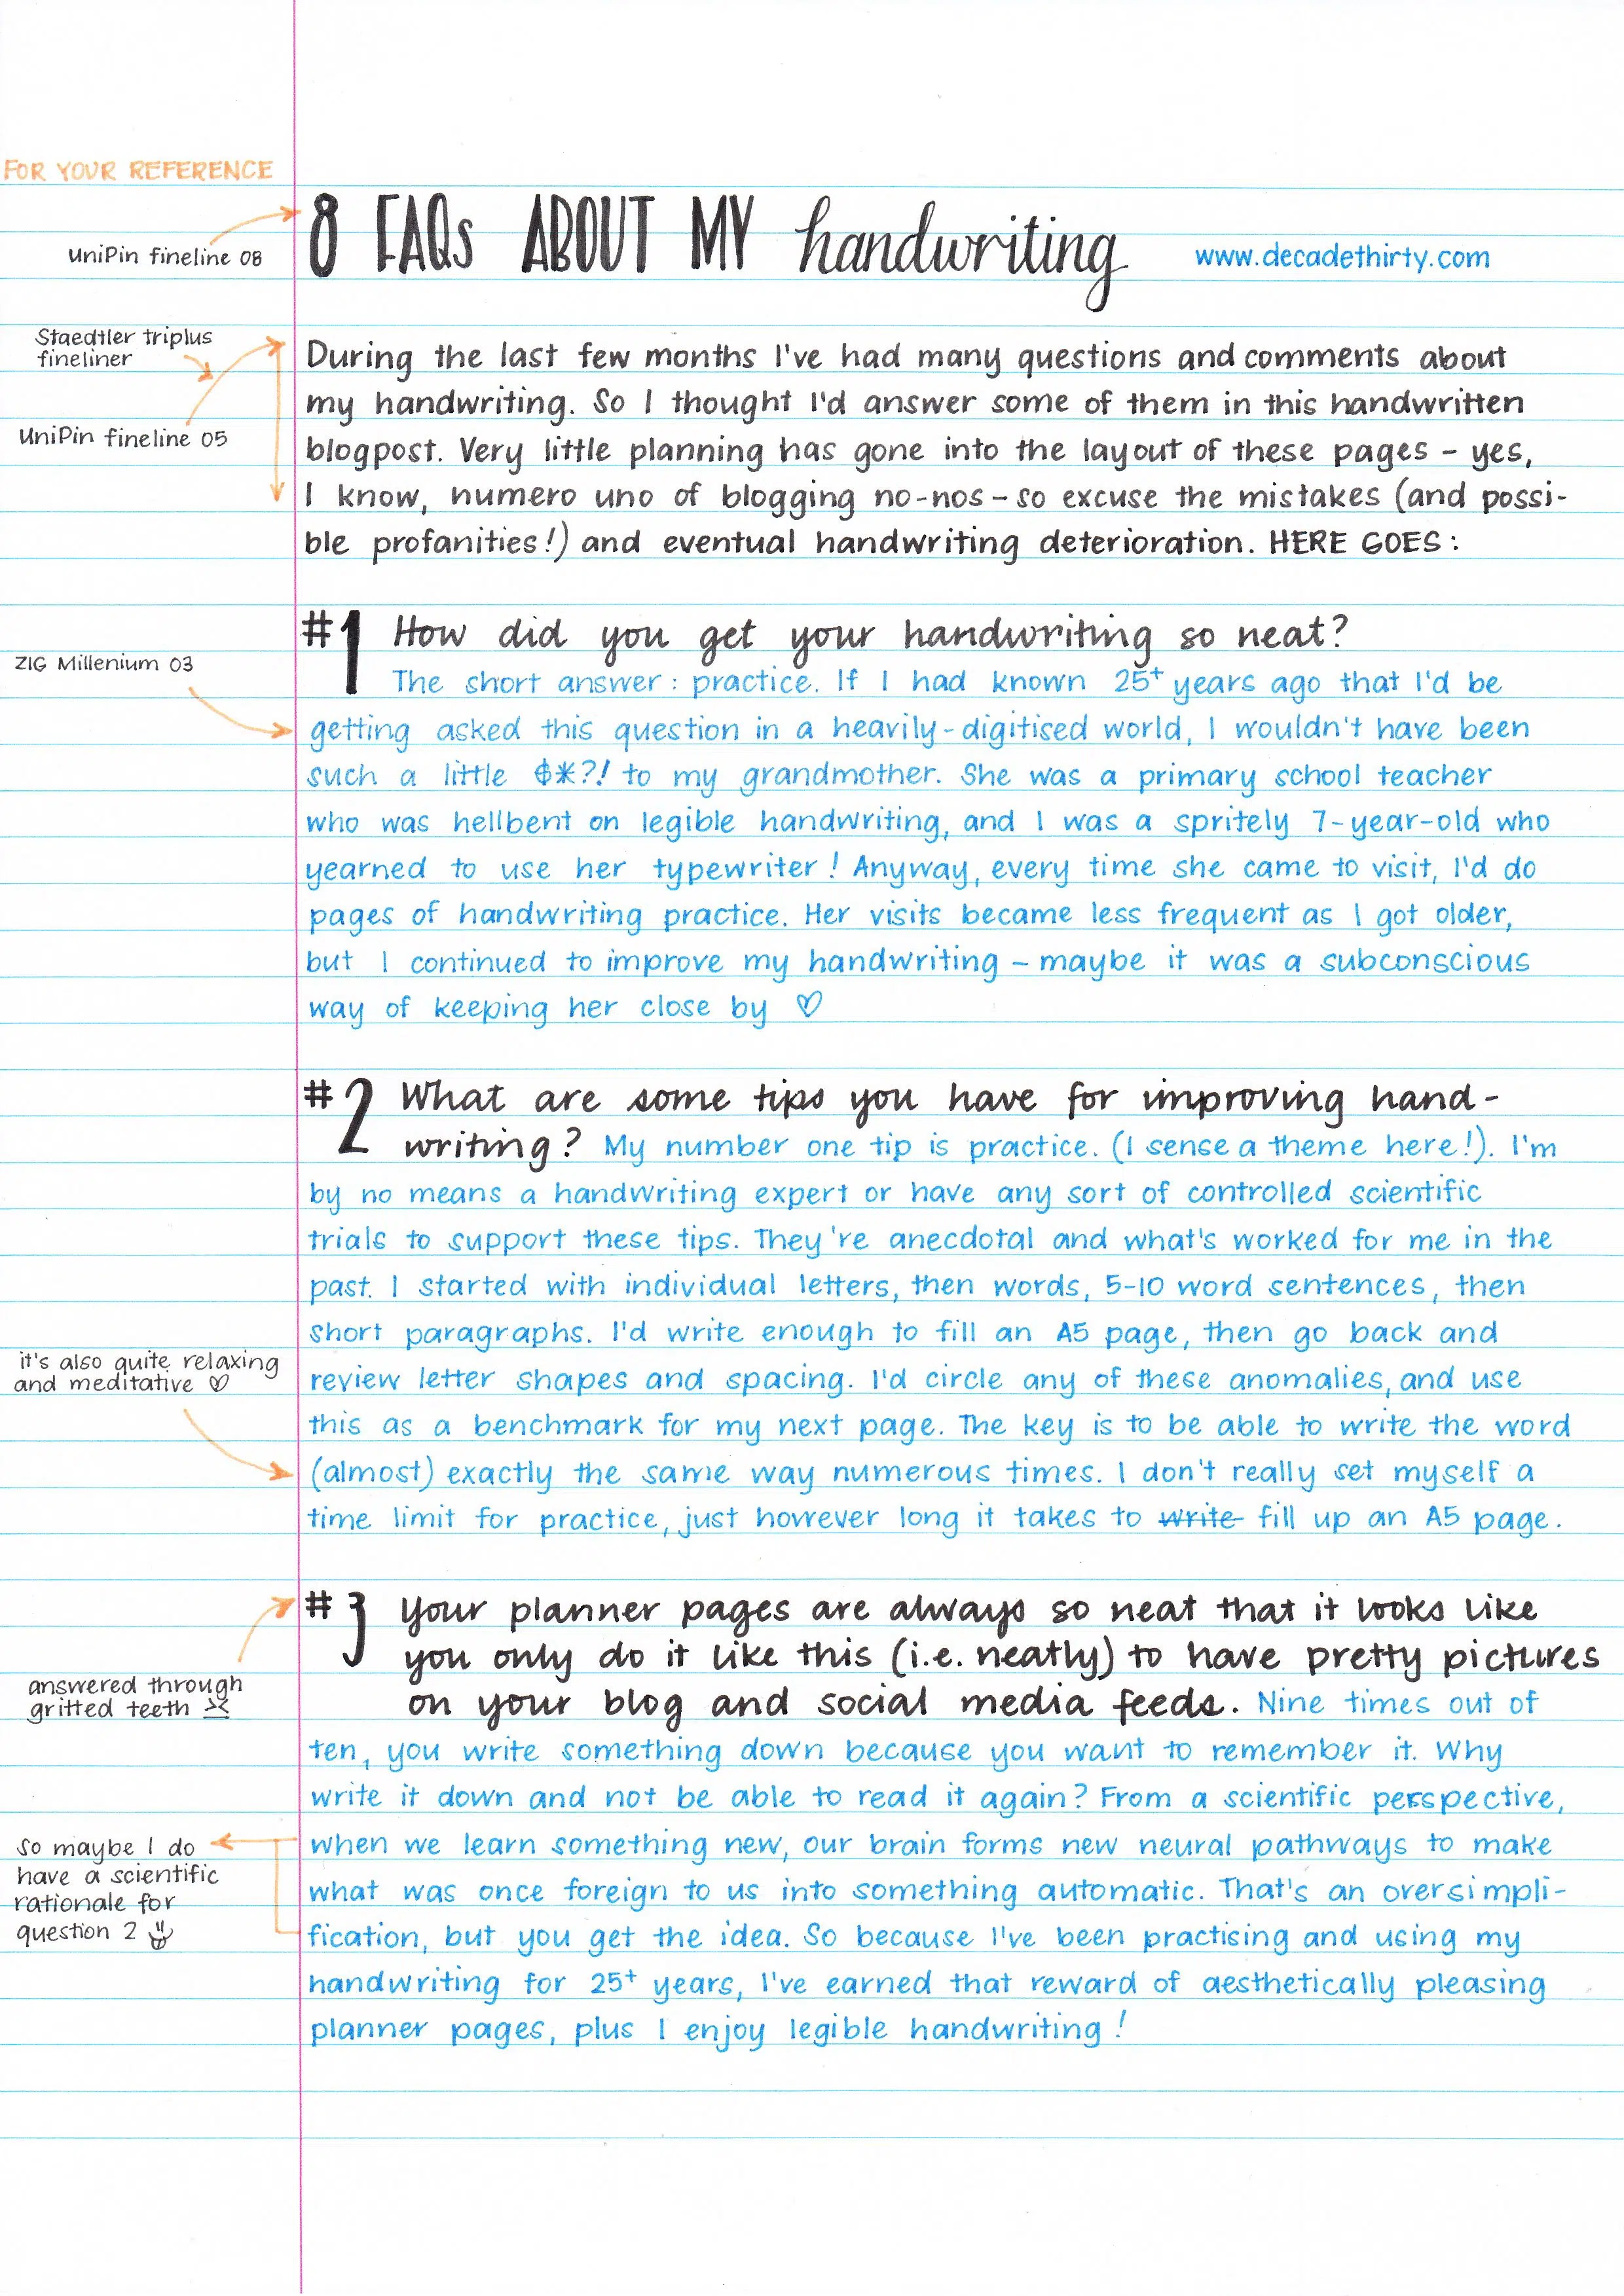 FOR YOUR REFERENCE
8 FAQs ABOUT MY handwriting
www.decadethirty.com
UniPin fineline 08
Staedtler triplus
fineliner
UniPin fineline 05
During the last few months I've had many questions and comments about
my handwriting. So I thought I'd answer some of them in this handwritten
blogpost. Very little planning has gone into the layout of these pages - yes,
I know, numero uno of blogging no-nos - so excuse the mistakes (and possi-
ble profanities!) and eventual handwriting deterioration. HERE GOES:
#1 How did you get your handwriting so neat?
ZIG Millenium 03
The short answer: practice. If I had known 25+ years ago that I'd be
getting asked this question in a heavily-digitised world, I wouldn't have been
such a little $*?! to my grandmother. She was a primary school teacher
who was hellbent on legible handwriting, and I was a spritely 7-year-old who
yearned to use her typewriter! Anyway, every time she came to visit, I'd do
pages of handwriting practice. Her visits became less frequent as I got older,
but I continued to improve my handwriting - maybe it was a subconscious
way of keeping her close by ♡
#2 What are some tips you have for improving hand-
writing? My number one tip is practice. (I sense a theme here!). I'm
by no means a handwriting expert or have any sort of controlled scientific
trials to support these tips. They're anecdotal and what's worked for me in the
past. I started with individual letters, then words, 5-10 word sentences, then
short paragraphs. I'd write enough to fill an A5 page, then go back and
it's also quite relaxing
and meditative ♡
review letter shapes and spacing. I'd circle any of these anomalies, and use
this as a benchmark for my next page. The key is to be able to write the word
(almost) exactly the same way numerous times. I don't really set myself a
time limit for practice, just however long it takes to write fill up an A5 page.
#3 Your planner pages are always so neat that it looks like
you only do it like this (i.e. neatly) to have pretty pictures
on your blog and social media feeds. Nine times out of
answered through
gritted teeth
ten, you write something down because you want to remember it. Why
write it down and not be able to read it again? From a scientific perspective,
when we learn something new, our brain forms new neural pathways to make
what was once foreign to us into something automatic. That's an oversimpli-
fication, but you get the idea. So because I've been practising and using my
handwriting for 25+ years, I've earned that reward of aesthetically pleasing
planner pages, plus I enjoy legible handwriting!
so maybe I do
have a scientific
rationale for
question 2